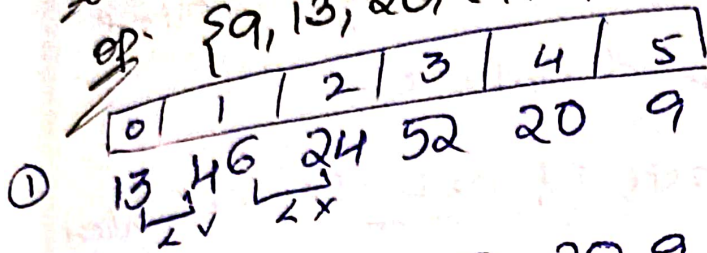 op: {9, 13, 20,
0 | 1 | 2 | 3 | 4 | 5
① 13 46 24 52 20 9
< ✓ < ×
20 9